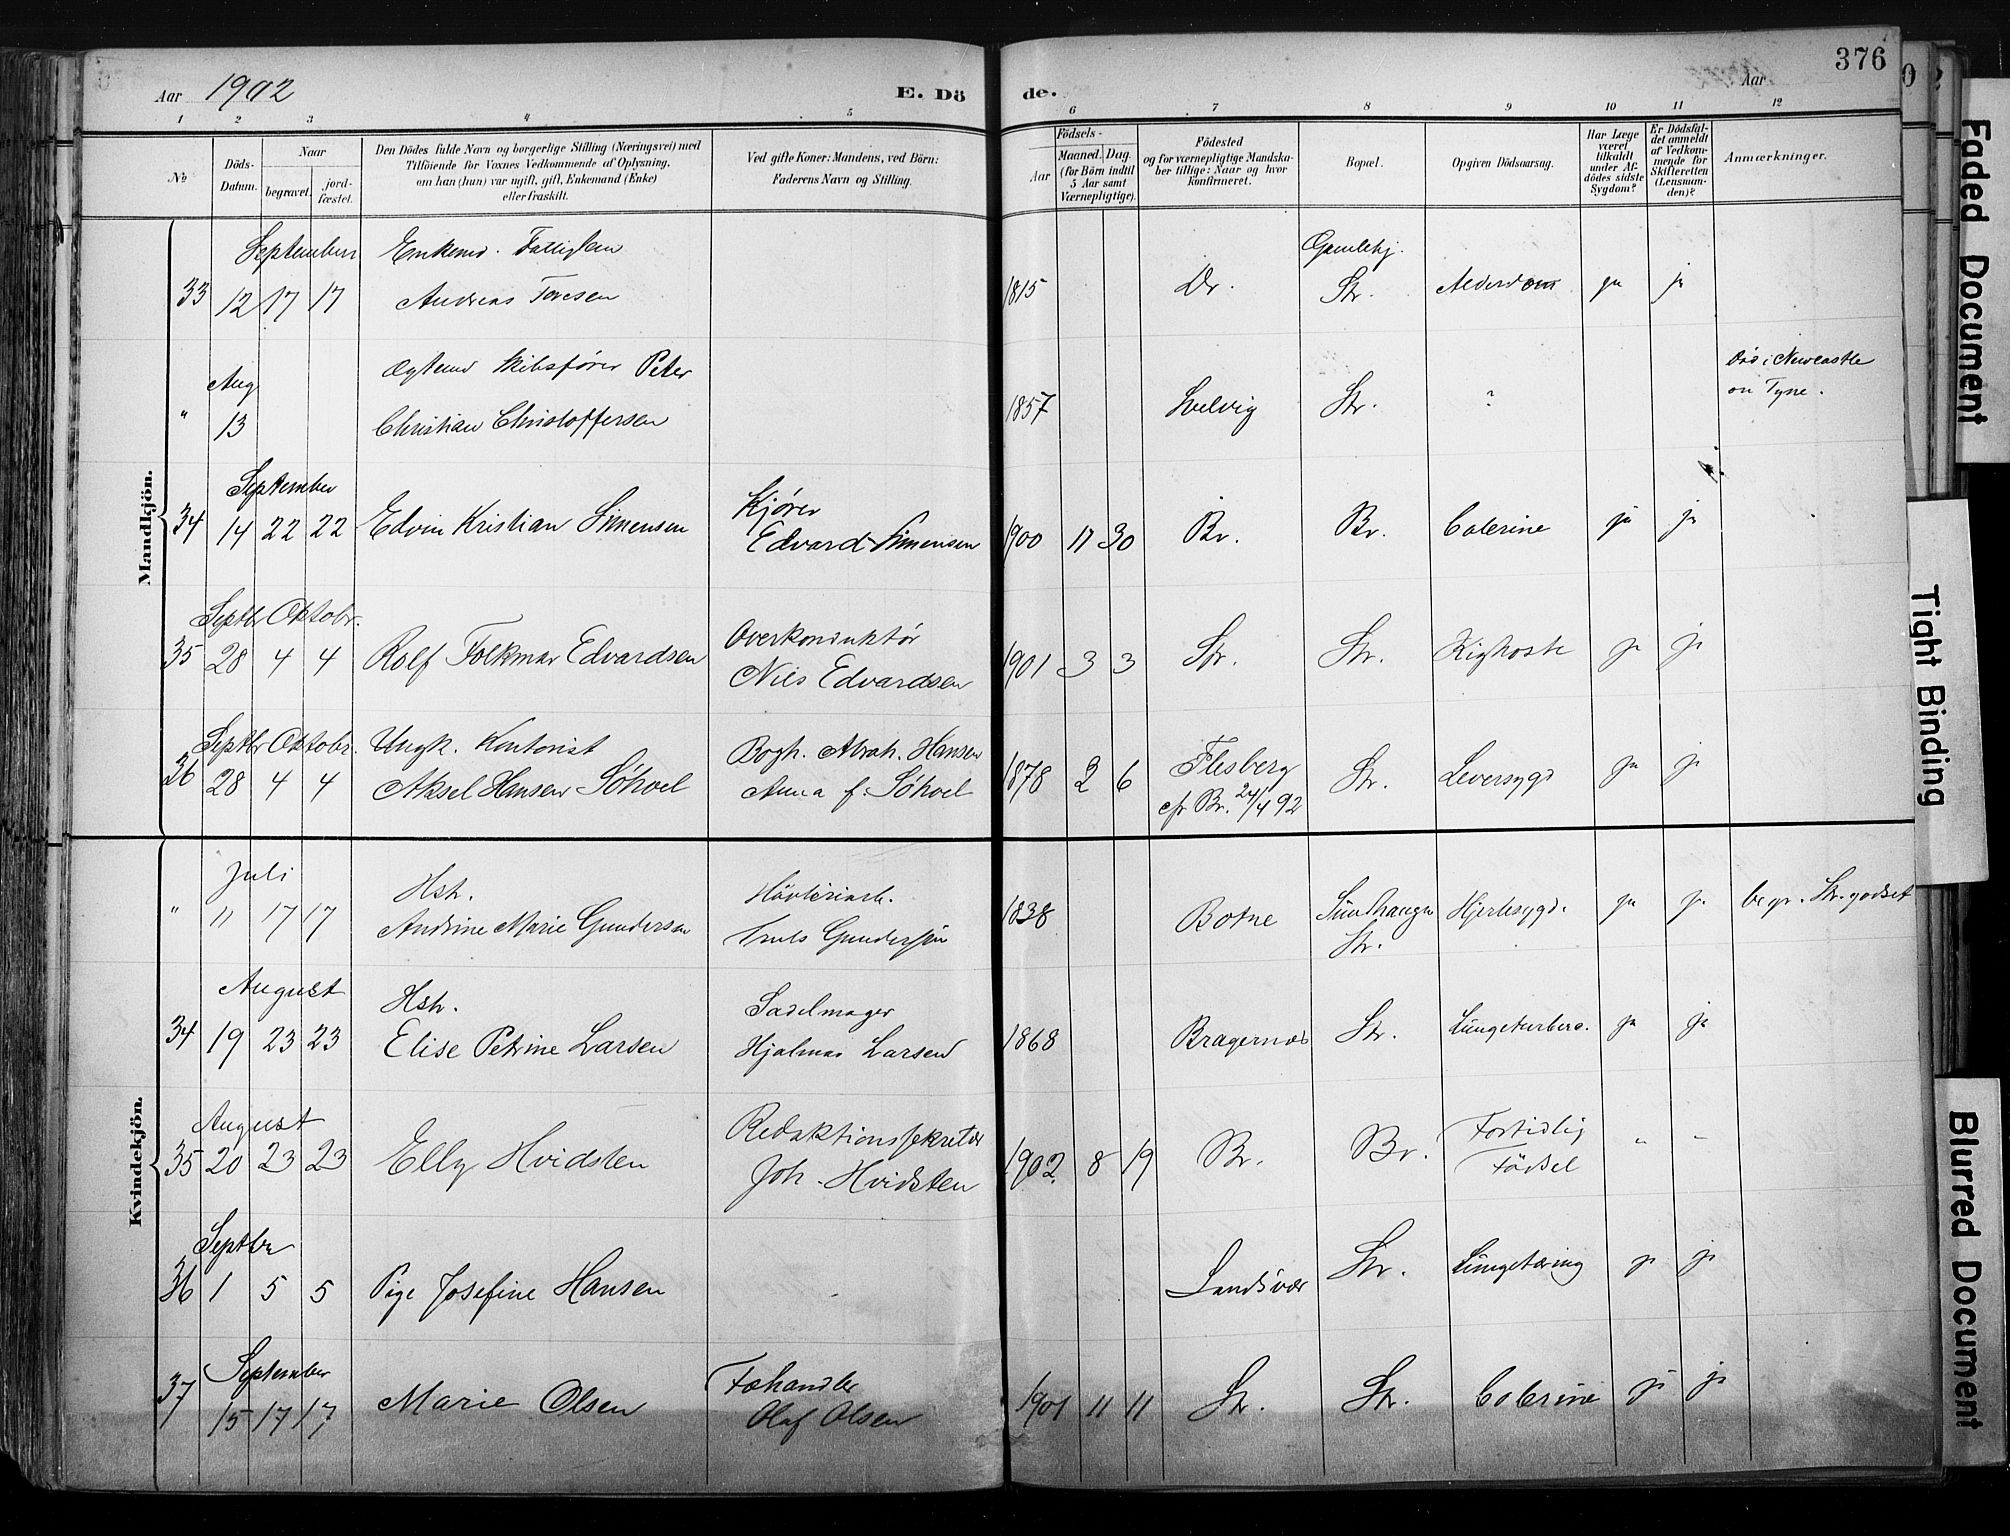 376
Aar 1902
E. Dö de.
Aar
1 2 3 4 5 6 7 8 9 10 11 12
No
Döds-Datum.
Naar
begravet.
jord-fæstet.
Den Dödes fulde Navn og borgerlige Stilling (Næringsvei) med
Tilföiende for Voxnes Vedkommende af Oplysning,
om han (hun) var ugift, gift, Enkemand (Enke)
eller fraskilt.
Ved gifte Koner: Mandens, ved Börn:
Faderens Navn og Stilling.
Födsels-
Aar
Maaned. Dag.
(for Börn indtil
5 Aar samt
Værnepligtige).
Födested
og for værnepligtige Mandska-
ber tillige: Naar og hvor
konfirmeret.
Bopæl.
Opgiven Dödsaarsag.
Har Læge
været
tilkaldt
under Af-
dödes sidste
Sygdom?
Er Dödsfal-
det anmeldt
af Vedkom-
mende for
Skifteretten
(Lensman-
den)?
Anmærkninger.
Mandkjön.
September Enkemd. Fattiglem Gamlehj.
33 12 17 17 Andreas Toresen 1815 Dr. Str. Alderdom ja ja
Aug Ægtemd Skibsfører Peter Død i Newcastle
" 13 Christian Christoffersen 1857 Svelvig Str. ? on Tyne.
September Kjører
34 14 22 22 Edvin Kristian Simensen Edvard Simensen 1900 11 30 Br. Br. Colerine ja ja
Septbr Oktobr. Overkonduktør
35 28 4 4 Rolf Folkmar Edvardsen Niels Edvardsen 1901 3 3 Str. Str. Kighoste ja ja
Septbr Oktobr. Ungk. Kontorist Bogh. Abrah. Hansen Flesberg
36 28 4 4 Aksel Hansen Söhoel Anna f. Söhoel 1878 2 6 cfr Br. 24/4 92 Str. Leversygd ja ja
Kvindekjön.
Juli Hstr.
" 11 17 17 Andrine Marie Gundersen Truls Gundersen 1838 Botne Sundhaugen Str. Hjertesygd. ja ja begr. Str. godset
August Hstr. Sadelmager
34 19 23 23 Elise Petrine Larsen Hjalmar Larsen 1868 Bragernæs Str. Lungetuberc. ja ja
August Redaktionssekretær Fortidlig
35 20 23 23 Elly Hvidsten Joh. Hvidsten 1902 8 19 Br. Br. Födsel " "
Septbr
36 1 5 5 Pige Josefine Hansen Sandsvær Str. Lungetæring ja ja
September Fehandler
37 15 17 17 Marie Olsen Olaf Olsen 1901 11 11 Str. Str. Colerine ja ja
Faded Document
Tight Binding
Blurred Document